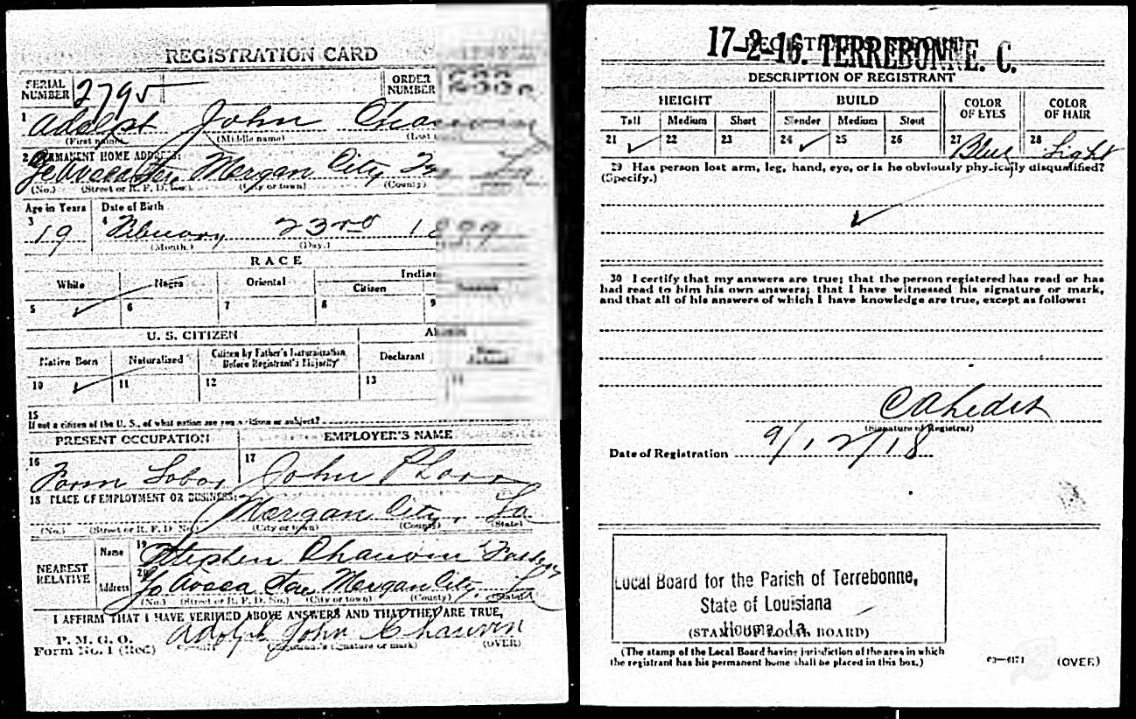 REGISTRATION CARD
SERIAL NUMBER 2795
ORDER NUMBER
1 Adolph John Chauvin
(First name) (Middle name) (Last
2 PERMANENT HOME ADDRESS:
Morgan City La
(No.) (Street or R. F. D. No.) (City or town) (County)
Age in Years Date of Birth
3 19 4 Febuary 23rd 1899
(Month.) (Day.)
RACE
White Negro Oriental Indian
Citizen
5 ✓ 6 7 8 9
U. S. CITIZEN
Native Born Naturalized Citizen by Father's Naturalization Before Registrant's Majority Declarant
10 ✓ 11 12 13
15
If not a citizen of the U. S., of what nation are you a citizen or subject?
PRESENT OCCUPATION EMPLOYER'S NAME
16 Farm Labor 17 John
18 PLACE OF EMPLOYMENT OR BUSINESS:
Morgan City, La
(No.) (Street or R. F. D. No.) (City or town) (County) (State)
NEAREST RELATIVE
Name 19 Stephen Chauvin Father
Address 20 Avoca Morgan City La
(No.) (Street or R. F. D. No.) (City or town) (County) (State)
I AFFIRM THAT I HAVE VERIFIED ABOVE ANSWERS AND THAT THEY ARE TRUE,
P. M. G. O.
Form No. 1 (Red)
Adolph John Chauvin
signature or mark) (OVER)
17-2-16. TERREBONNE. C.
DESCRIPTION OF REGISTRANT
HEIGHT BUILD COLOR OF EYES COLOR OF HAIR
Tall Medium Short Slender Medium Stout
21 ✓ 22 23 24 ✓ 25 26 27 Blue 28 Light
29 Has person lost arm, leg, hand, eye, or is he obviously physically disqualified?
(Specify.)
✓
30 I certify that my answers are true; that the person registered has read or has
had read to him his own answers; that I have witnessed his signature or mark,
and that all of his answers of which I have knowledge are true, except as follows:
(Signature of Registrar)
Date of Registration 9/12/18
Local Board for the Parish of Terrebonne,
State of Louisiana
Houma, La.
(STAMP OF LOCAL BOARD)
(The stamp of the Local Board having jurisdiction of the area in which
the registrant has his permanent home shall be placed in this box.)
03—6171 (OVER)